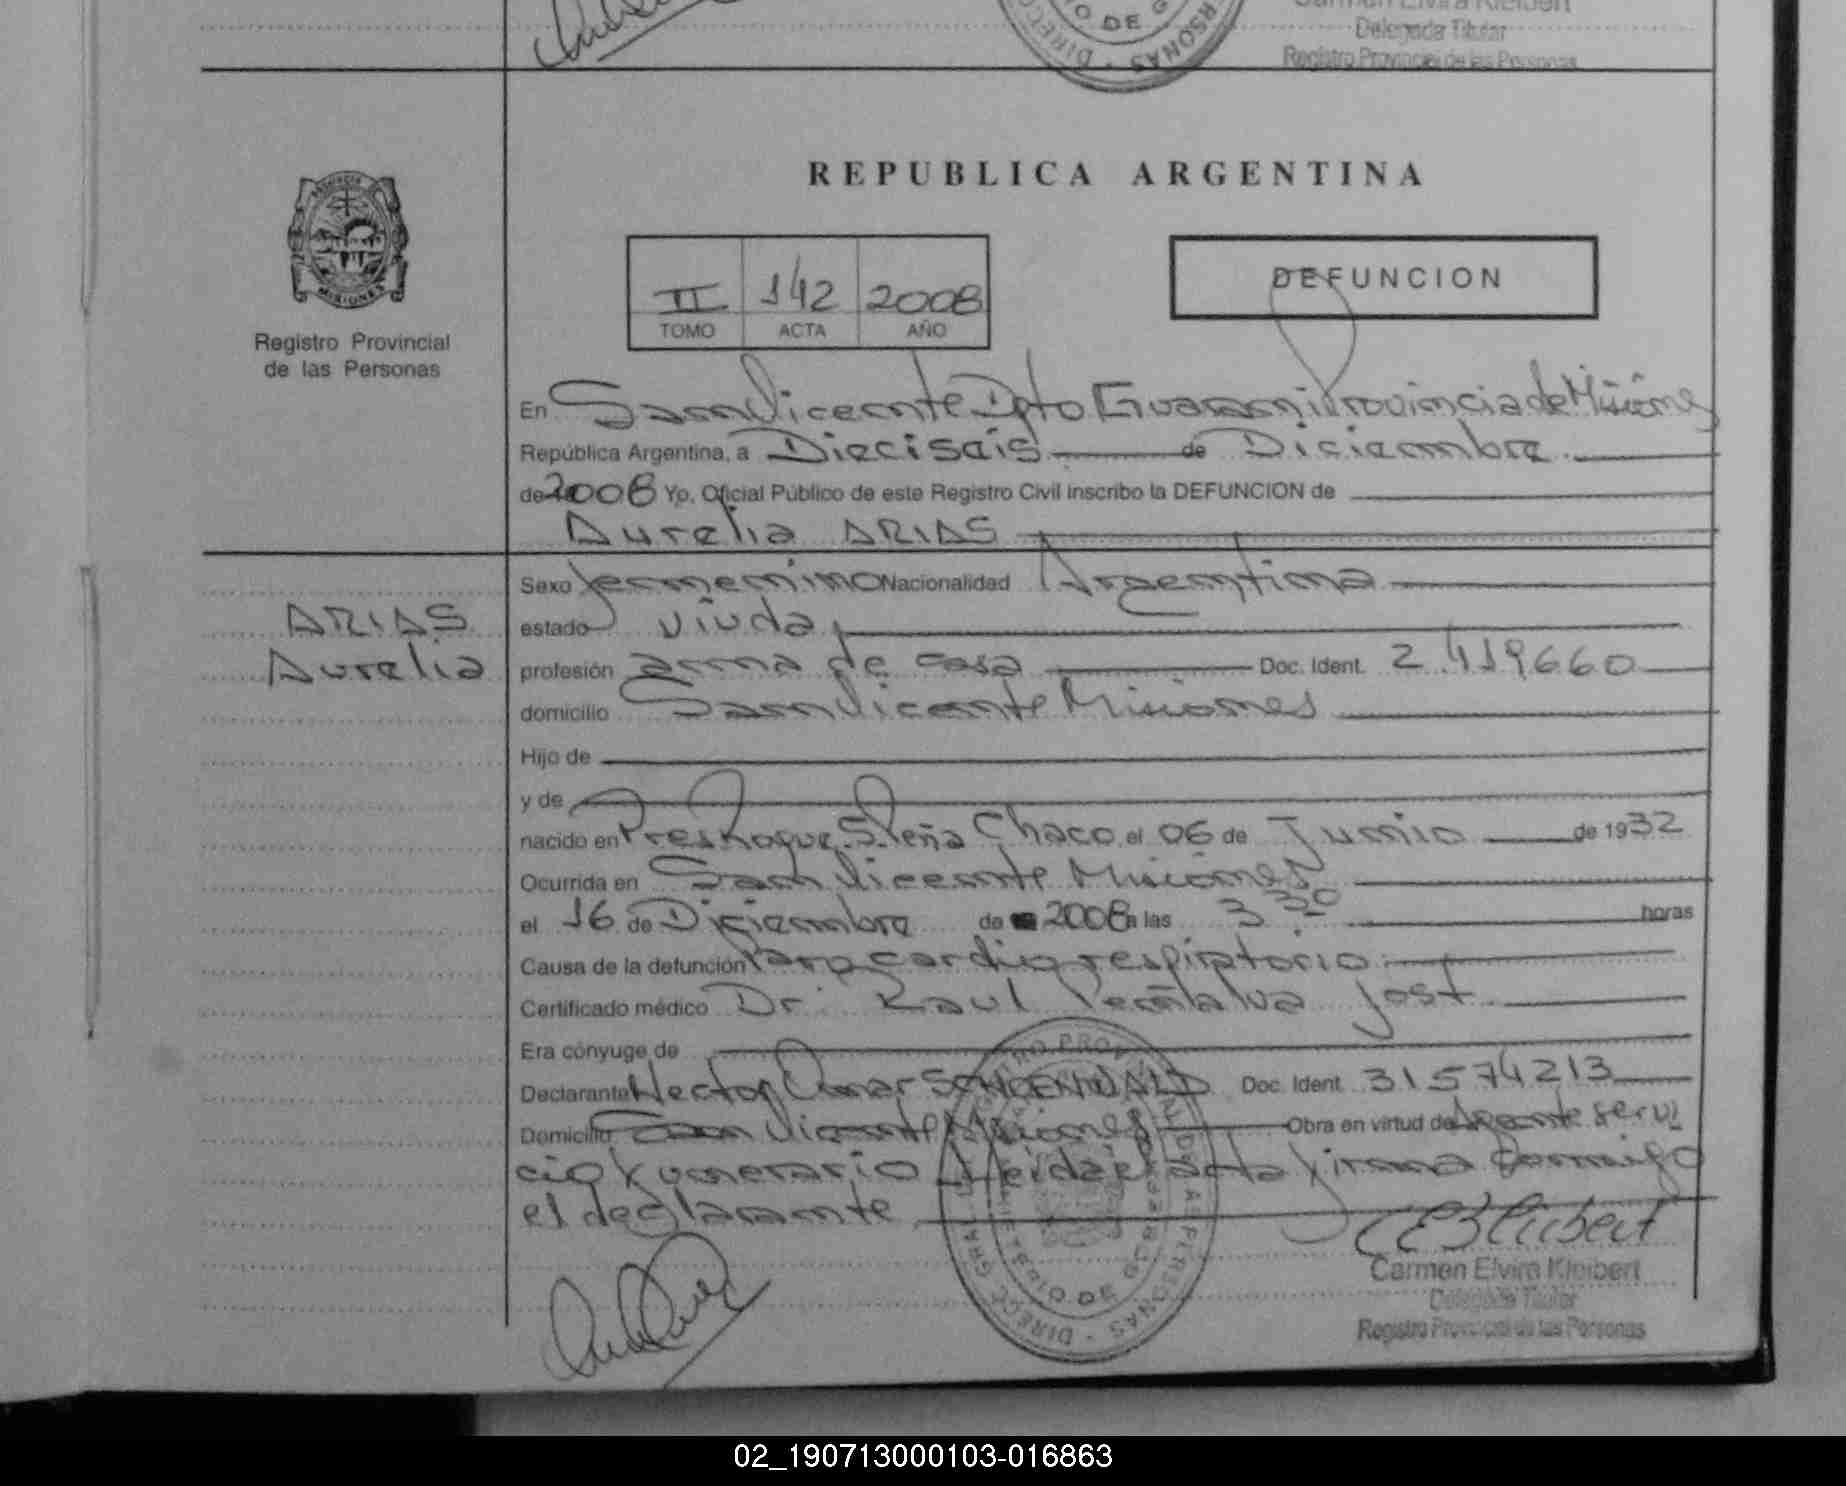 Carmen Elvira Kleibert
Delegada Titular
Registro Provincial de las Personas
REPUBLICA ARGENTINA
II 142 2008
TOMO ACTA AÑO
DEFUNCION
MISIONES
Registro Provincial
de las Personas
En San Vicente Dpto Guarani Provincia de Misiones
República Argentina, a Dieciseis de Diciembre
de 2008 Yo, Oficial Público de este Registro Civil inscribo la DEFUNCION de
Aurelia ARIAS
ARIAS
Aurelia
Sexo femenino Nacionalidad Argentina
estado viuda
profesión ama de casa Doc. Ident. 2.419660
domicilio San Vicente Misiones
Hijo de
y de
nacido en Pres Roque S. Peña Chaco el 06 de Junio de 1932
Ocurrida en San Vicente Misiones
el 16 de Diciembre de 2008 a las 3.30 horas
Causa de la defunción Paro cardio respiratorio
Certificado médico Dr. Raul Peñalva Jost
Era cónyuge de
Declarante Hector Omar SCHOENWALD Doc. Ident. 31574213
Domicilio San Vicente Misiones Obra en virtud de Agente servi
cio funerario Leida el acta firma conmigo
el declarante
Carmen Elvira Kleibert
Delegada Titular
Registro Provincial de las Personas
02_190713000103-016863